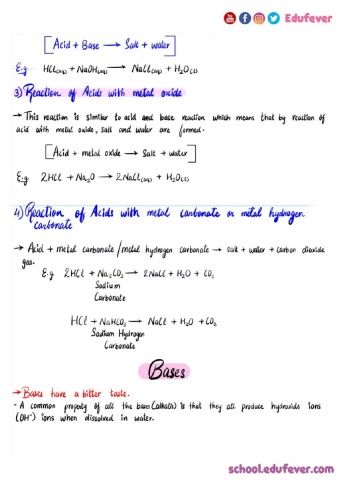 Edufever
[Acid + Base → Salt + water]
E.g HCl(aq) + NaOH(aq) → NaCl(aq) + H₂O(l)
3) Reaction of Acids with metal oxide
→ This reaction is similar to acid and base reaction which means that by reaction of
acid with metal oxide, salt and water are formed.
[Acid + metal oxide → Salt + water]
E.g 2HCl + Na₂O → 2NaCl(aq) + H₂O(l)
4) Reaction of Acids with metal carbonate or metal hydrogen
carbonate
→ Acid + metal carbonate / metal hydrogen carbonate → salt + water + carbon dioxide
gas.
E.g 2HCl + Na₂CO₃ → 2NaCl + H₂O + CO₂
Sodium
Carbonate
HCl + NaHCO₃ → NaCl + H₂O + CO₂
Sodium Hydrogen
Carbonate
Bases
→ Bases have a bitter taste.
- A common property of all the bases (alkali) is that they all produce hydroxide ions
(OH⁻) ions when dissolved in water.
school.edufever.com